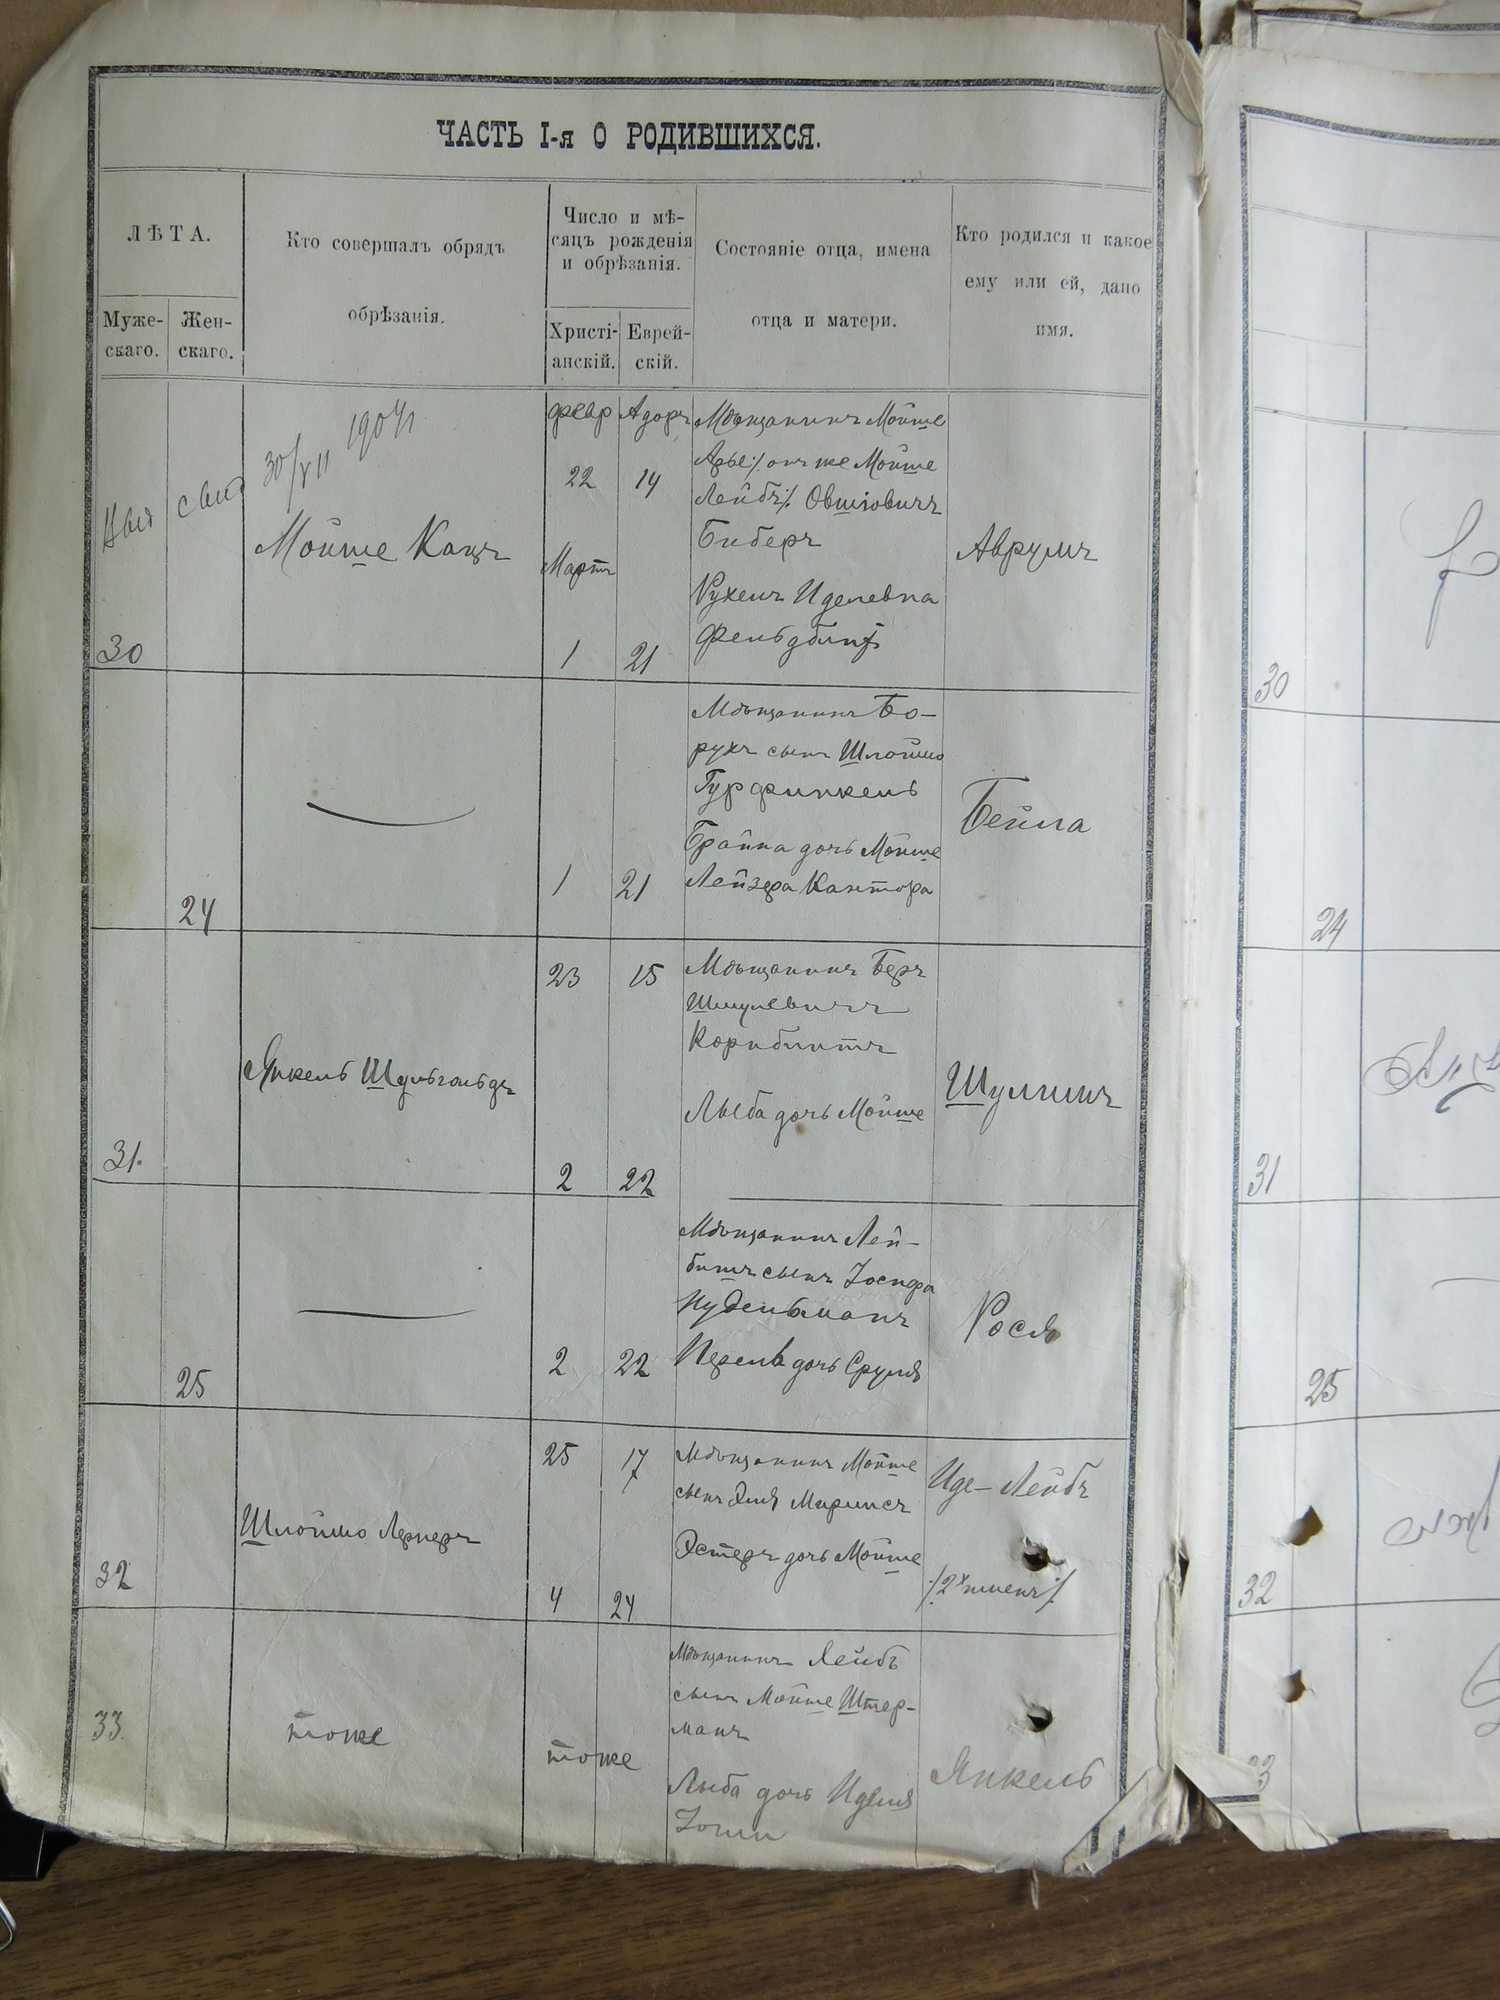 ЧАСТЬ I-я О РОДИВШИХСЯ.
ЛѢТА.
Муже-
скаго.
Жен-
скаго.
Кто совершалъ обрядъ
обрѣзанія.
Число и мѣ-
сяцъ рожденія
и обрѣзанія.
Христі-
анскій.
Еврей-
скій.
Состояніе отца, имена
отца и матери.
Кто родился и какое
ему или ей, дано
имя.
30
30/XII
Мойше Кацъ
февр
22
Мартъ
1
Адоръ
14
21
Мѣщанинъ Мойше
Арье ./. онъ же Мойше
Лейбъ ./. Овшіовичъ
Биберъ
Рухель Иделевна
Аврумъ
24
1
21
Мѣщанинъ Бо-
рухъ сынъ Шлоймо
Гурфинкель
Брайна дочь Мойше
Лейзера Кантора
Бейла
31.
Янкель Шульгольдъ
23
2
15
22
Мѣщанинъ Беръ
Шмулевичъ
Корнблитъ
Лыба дочь Мойше
Шулимъ
25
2
22
Мѣщанинъ Лей-
бишъ сынъ Іосифа
Нудельманъ
Перель дочь Сруля
Рося
32
Шлоймо Лернеръ
25
4
17
24
Мѣщанинъ Мойше
сынъ Эля Мирписъ
Эстеръ дочь Мойше
Иде-Лейбъ
./. 2х имень ./.
33.
тоже
тоже
Мѣщанинъ Лейбъ
сынъ Мойше Штер-
манъ
Лыба дочь Иделя
Янкель
30
24
31
25
32
33